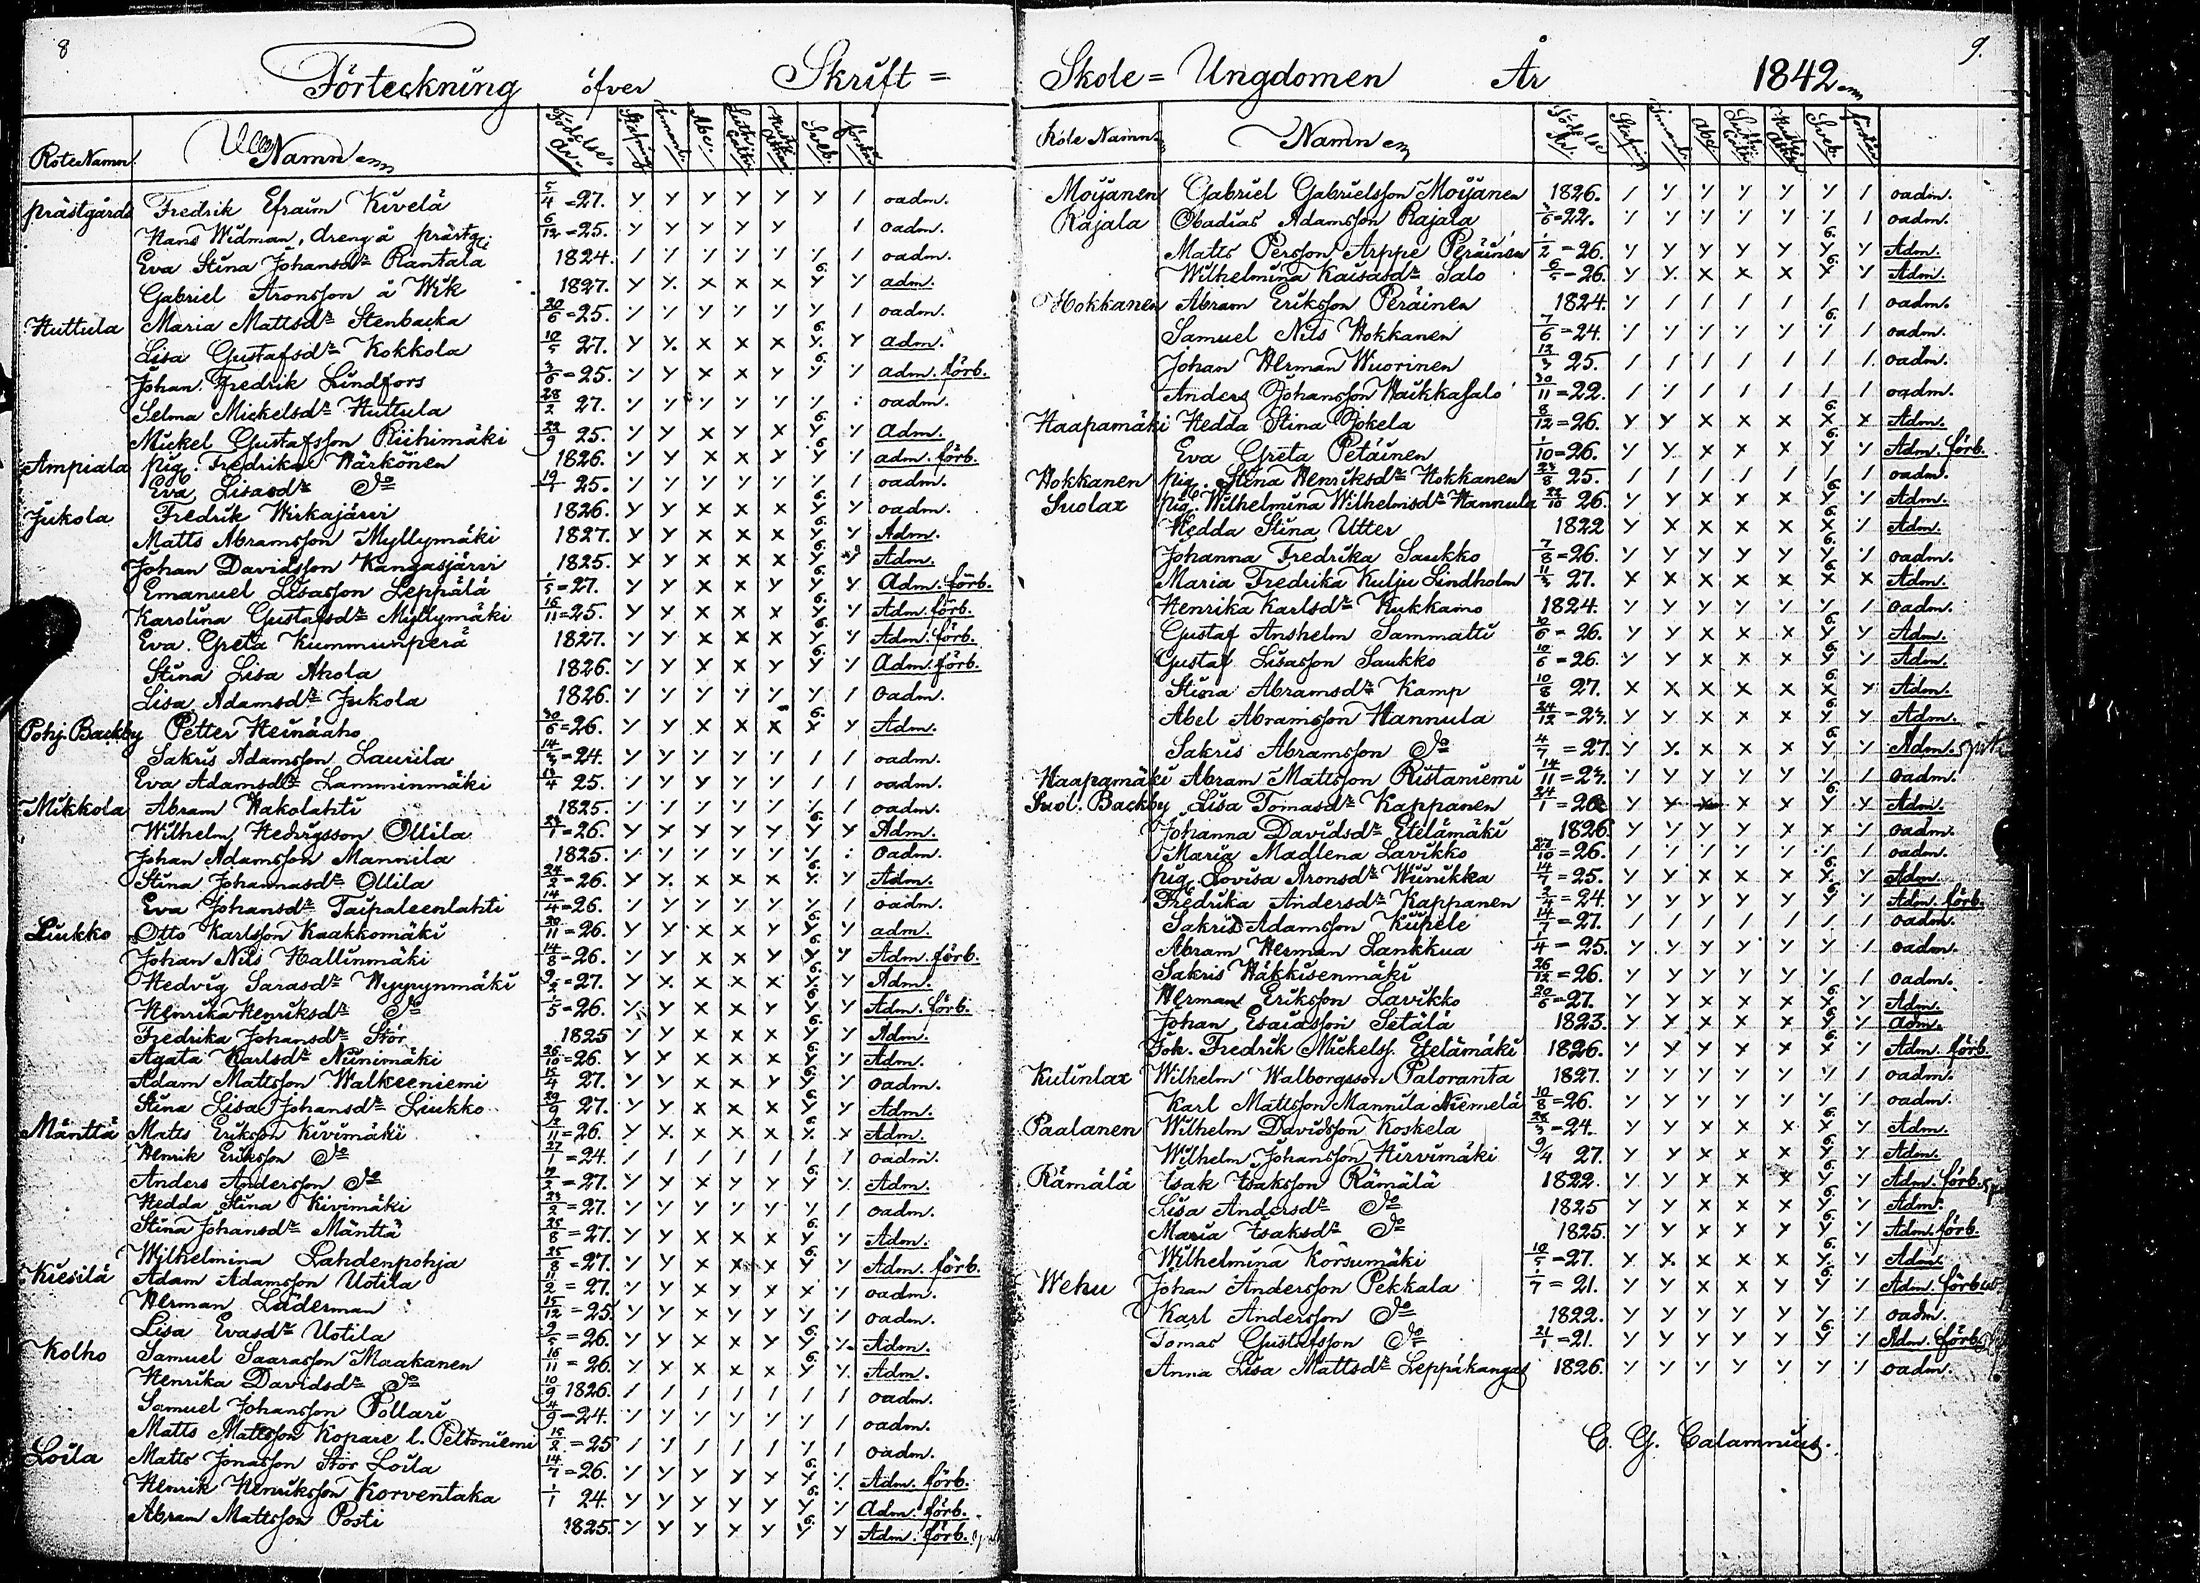 8
Förteckning öfver Skrift =
Rote Namn. Namn Födelse År. Stafning Innant. Abc.
prästgårds Fredrik Efraim Kivelä 5/4 = 27. oadm.
Hans Widman, dreng å prästg. 6/12 = 25. oadm.
Eva Stina Johansdr Rantala 1824. oadm.
Gabriel Aronsson å Wik 1827. adm.
Huttula Maria Mattsdr Stenbacka 20/6 = 25. oadm.
Lisa Gustafsdr Kokkola 10/5 27. adm.
Johan Fredrik Lindfors 3/6 = 25. adm. förb.
Selma Mickelsdr Huttula 28/2 27. oadm.
Mickel Gustafsson Riihimäki 29/9 25. adm.
Ampiala pig. Fredrika Härkönen 1826. adm. förb.
Eva Lisasdr Do 25. oadm.
Jukola Fredrik Wirkajärvi 1826. oadm.
Matts Abramsson Myllymäki 1827. Adm.
Johan Davidsson Kangasjärvi 1825. Adm.
Emanuel Lisasson Leppälä 1/5 = 27. Adm. förb.
Karolina Gustafsdr Myllymäki 16/11 = 25. Adm. förb.
Eva Greta Kummunperä 1827. Adm. förb.
Stina Lisa Ahola 1826. Adm. förb.
Lisa Adamsdr Jukola 1826. oadm.
Pohj. Backby Petter Heinäaho 30/6 = 26. Adm.
Sakris Adamsson Laurila 14/3 = 24. oadm.
Eva Adamsdr Lamminmäki 13/4 25. oadm.
Mikkola Abram Hakolahti 1825. oadm.
Wilhelm Hedvigsson Ollila 23/1 = 26. Adm.
Johan Adamsson Mannila 1825. oadm.
Stina Johannasdr Ollila 24/2 = 26. Adm.
Eva Johansdr Taipaleenlahti 14/4 = 26. oadm.
Liukko Otto Karlsson Kaakkomäki 20/11 = 26. adm.
Johan Nils Hallinmäki 14/8 = 26. Adm. förb.
Hedvig Sarasdr Hyypynmäki 9/2 = 27. Adm.
Henrika Henriksdr Do 1/5 = 26. Adm. förb.
Fredrika Johansdr Stör 1825 Adm.
Agata Karlsdr Niinimäki 26/10 = 26. Adm.
Adam Mattsson Walkeeniemi 15/4 27. oadm.
Stina Lisa Johansdr Liukko 29/9 27. Adm.
Mänttä Matts Eriksson Kivimäki 11 = 26. Adm.
Henrik Eriksson Do 27/1 = 24. oadm.
Anders Andersson Do 2 = 27. Adm.
Hedda Stina Kivimäki 23/2 = 27. oadm.
Stina Johansdr Mänttä 25/8 = 27. Adm.
Wilhelmina Lahdenpohja 25/8 = 27. Adm. förb.
Kiesilä Adam Adamsson Uotila 11/2 = 27. oadm.
Herman Läderman 15/12 = 25. oadm.
Lisa Evasdr Uotila 9/5 = 26. Adm.
Kolho Samuel Saarasson Maakanen 16/11 = 26. Adm.
Henrika Davidsdr Do 10/9 1826. oadm.
Samuel Johansson Pollari 4/9 = 24. oadm.
Matts Mattsson Kopare l. Peltoniemi 15/2 = 25 oadm.
Loila Matts Jonasson Stor Loila 14/7 = 26. Adm. förb.
Henrik Henriksson Korventaka 1/1 24. Adm. förb.
Abram Mattsson Posti 1825. Adm. förb.
9.
Skole = Ungdomen År 1842
Rote Namn Namn Födelse År. Stafning Innant. Abc
Moijanen Gabriel Gabrielsson Moijänen 1826. oadm.
Rajala Obadias Adamsson Rajala 6 = 22. oadm.
Matts Persson Arppe Peräinen 1/2 = 26. Adm.
Wilhelmina Kaisasdr Salo 6/5 = 26. Adm.
Hokkanen Abram Eriksson Peräinen 1824. oadm.
Samuel Nils Hokkanen 7/6 = 24. oadm.
Johan Herman Wuorinen 12/3 25. oadm.
Anders Johansson Haikkasalo 30/11 = 22. oadm.
Haapamäki Hedda Stina Jokela 8/12 = 26. Adm.
Eva Greta Petäinen 1/10 = 26. Adm. förb.
Hokkanen pig. Stina Henriksdr Hokkanen 23/8 25. oadm.
Suolax pig. Wilhelmina Wilhelmsdr Hannula 22/10 26. Adm.
Hedda Stina Utter 1822 Adm.
Johanna Fredrika Saukko 7/8 = 26. oadm.
Maria Fredrika Kulju Lindholm 11/3 27. Adm.
Henrika Karlsdr Hukkamo 1824. oadm.
Gustaf Anshelm Sammatti 10/6 = 26. Adm.
Gustaf Lisasson Saukko 10/6 = 26. Adm.
Stina Abramsdr Kamp 10/8 27. Adm.
Abel Abramsson Hannula 24/12 = 23. Adm.
Sakris Abramsson Do 4/7 = 27. Adm.
Haapamäki Abram Mattsson Ristaniemi 14/11 = 27. oadm.
Suol. Backby Lisa Tomasdr Kappanen 24/1 = 26 Adm.
Johanna Davidsdr Etelämäki 1826. oadm.
Maria Madlena Lavikko 28/10 = 26. oadm.
pig. Lovisa Aronsdr Wiinikka 14/7 = 25. Adm.
Fredrika Andersdr Kappanen 2/4 = 24. Adm. förb.
Sakris Adamsson Kiipele 14/7 = 27. oadm.
Abram Herman Lankkua 1/4 = 25. oadm.
Sakris Häkkisenmäki 26/12 = 26. oadm.
Herman Eriksson Lavikko 20/6 = 27. Adm.
Johan Esaiasson Setälä 1823. adm.
Joh. Fredrik Mickelss. Etelämäki 1826. Adm. förb.
Kutinlax Wilhelm Walborgsson Paloranta 1827. oadm.
Karl Mattsson Mannila Niemelä 10/8 = 26. oadm.
Paalanen Wilhelm Davidsson Koskela 28/3 = 24. Adm.
Wilhelm Johansson Hirvimäki 9/4 27. Adm.
Rämälä Isak Isaksson Rämälä 1822. Adm. förb.
Lisa Andersdr Do 1825 Adm.
Maria Isaksdr Do 1825. Adm. förb.
Wilhelmina Korsumäki 10/5 = 27. Adm.
Wehu Johan Andersson Pekkala 1/7 = 21. Adm. förb.
Karl Andersson Do 1822. oadm.
Tomas Gustafsson Do 21/1 = 21. Adm. förb.
Anna Lisa Mattsdr Leppäkangas 1826. oadm.
C. G. Calamnius.